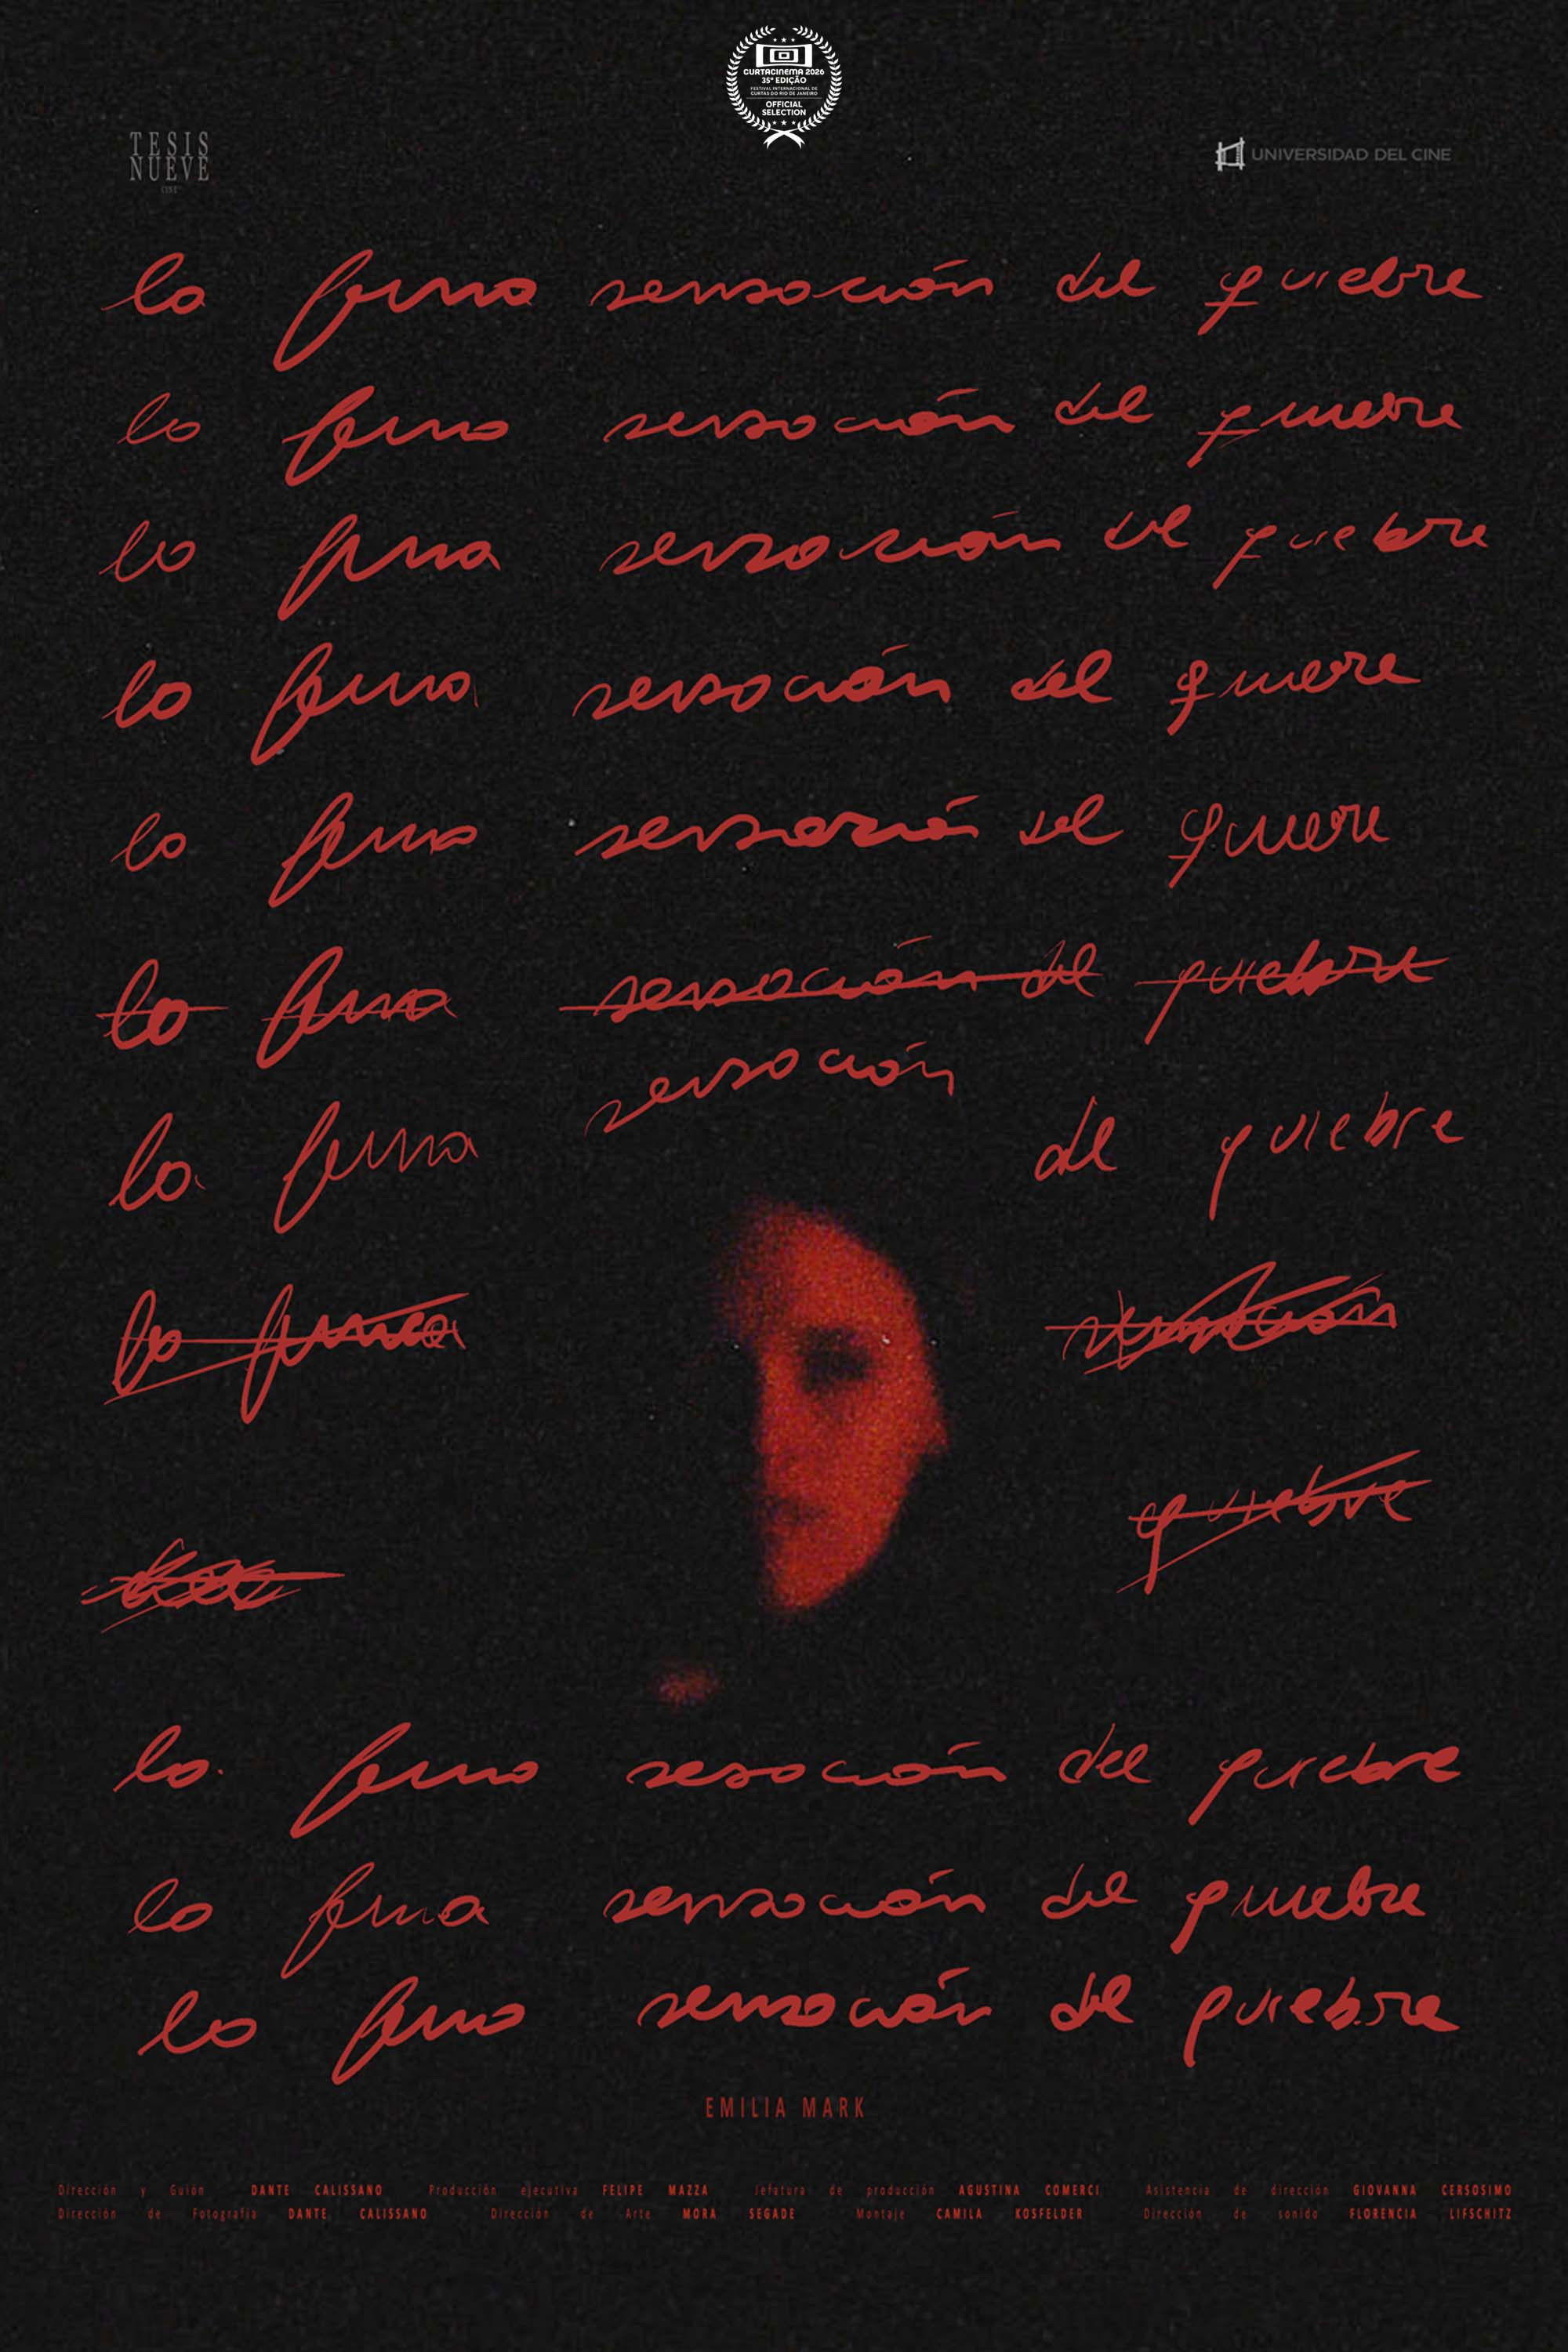 CURTACINEMA 2026
35ª EDIÇÃO
FESTIVAL INTERNACIONAL DE
CURTAS DO RIO DE JANEIRO
OFFICIAL
SELECTION
TESIS
NUEVE
CINE
UNIVERSIDAD DEL CINE
la fina sensación del quiebre
la fina sensación del quiebre
la fina sensación del quiebre
la fina sensación del quiebre
la fina sensación del quiebre
la fina sensación del quiebre
sensación
la fina del quiebre
la fina sensación
quiebre
la fina sensación del quiebre
la fina sensación del quiebre
la fina sensación del quiebre
EMILIA MARK
Dirección y Guión DANTE CALISSANO Producción ejecutiva FELIPE MAZZA Jefatura de producción AGUSTINA COMERCI Asistencia de dirección GIOVANNA CERSOSIMO
Dirección de Fotografía DANTE CALISSANO Dirección de Arte MORA SEGADE Montaje CAMILA KOSFELDER Dirección de sonido FLORENCIA LIFSCHITZ